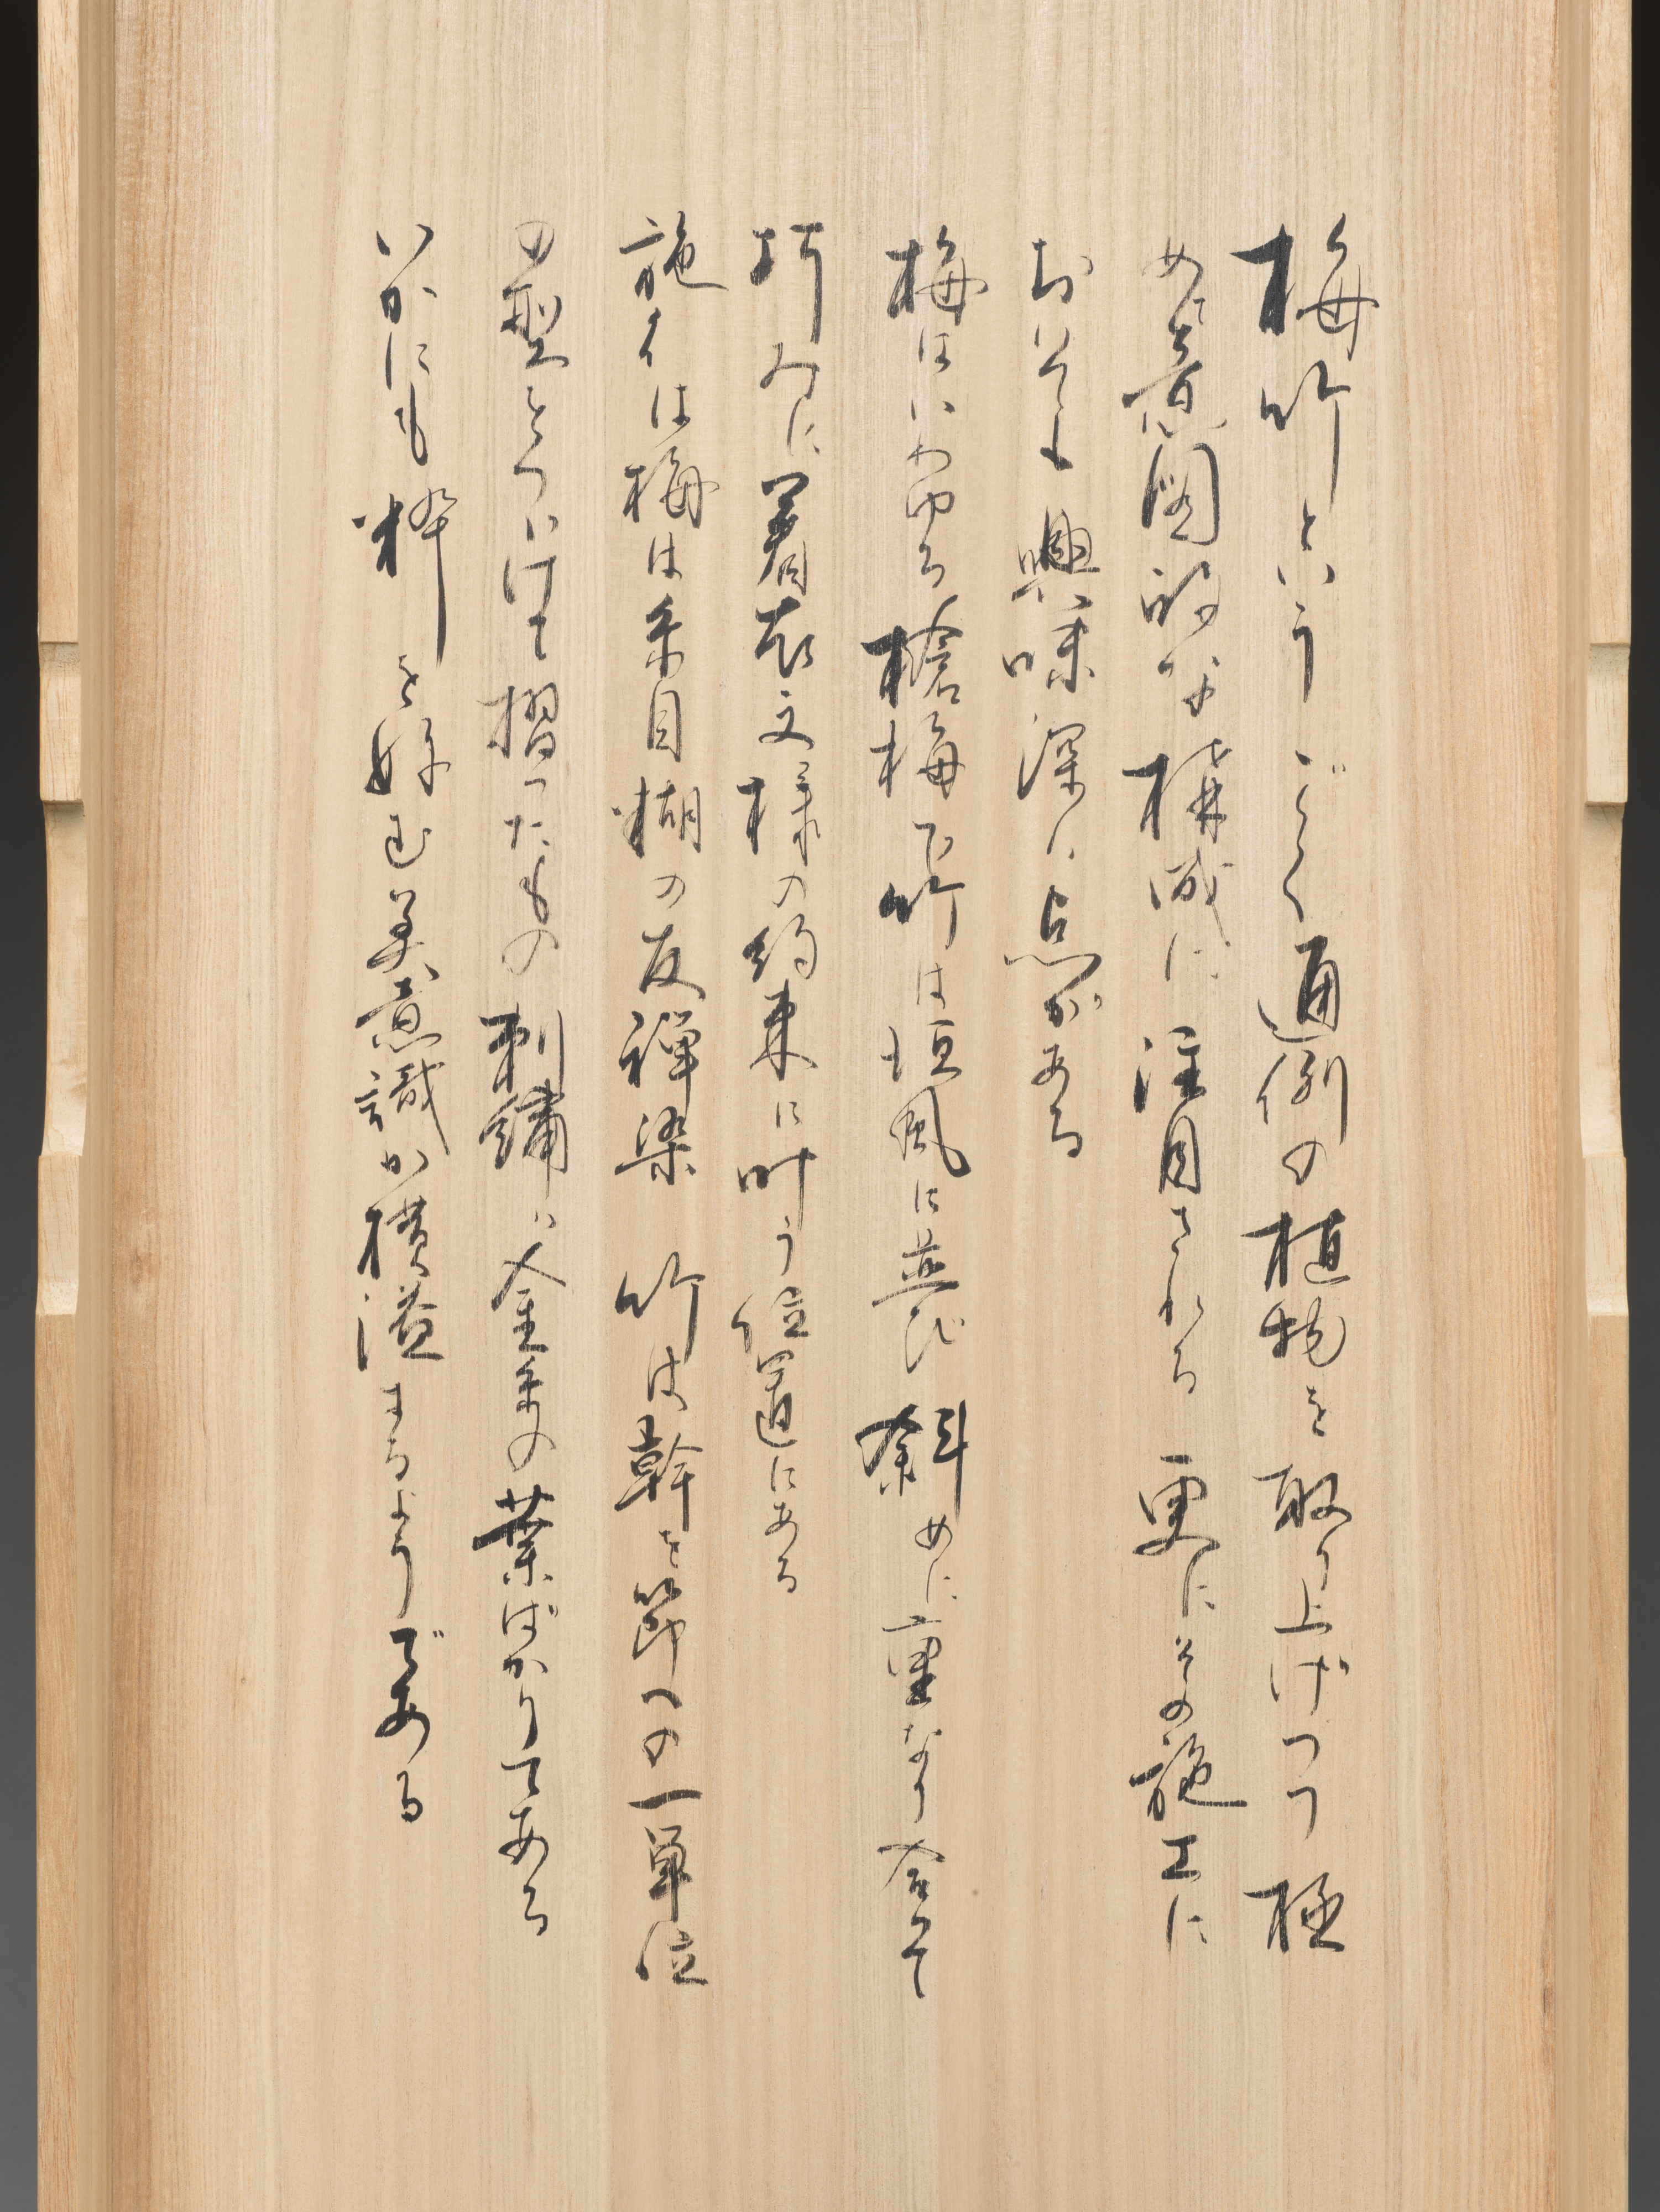 梅竹というごく通例の植物を取り上げつつ極
めて意図的な構成に注目される 更にその施工に
おいても興味深い点がある
梅はいわゆる槍梅で竹は垣風に並び斜めに重なり合って
巧みに着衣文様の約束に叶う位置にある
施工は梅は糸目糊の友禅染 竹は幹を節への一単位
の型をつけて摺ったもの 刺繍は金糸の葉ばかりである
いかにも粋を好む美意識が横溢するようである